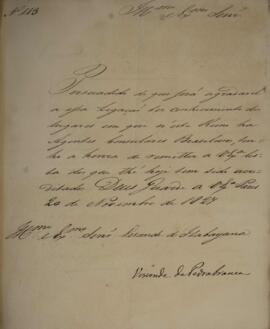 Nº 113
Illmo e Exmo Senr
Persuadido de que será agradavel
a essa Legação ter conhecimento dos
lugares em que n'este Reino ha
Agentes Consulares Brasileiros, ten-
ho a honra de remetter a V. Exa a lis-
ta dos que the hoje tem sido acre-
ditados. Deus Guarde a V. Exa Paris
20 de Novembro de 1827
Illmo
e Exmo Senr Visconde de Itabayana
Visconde da Pedra branca